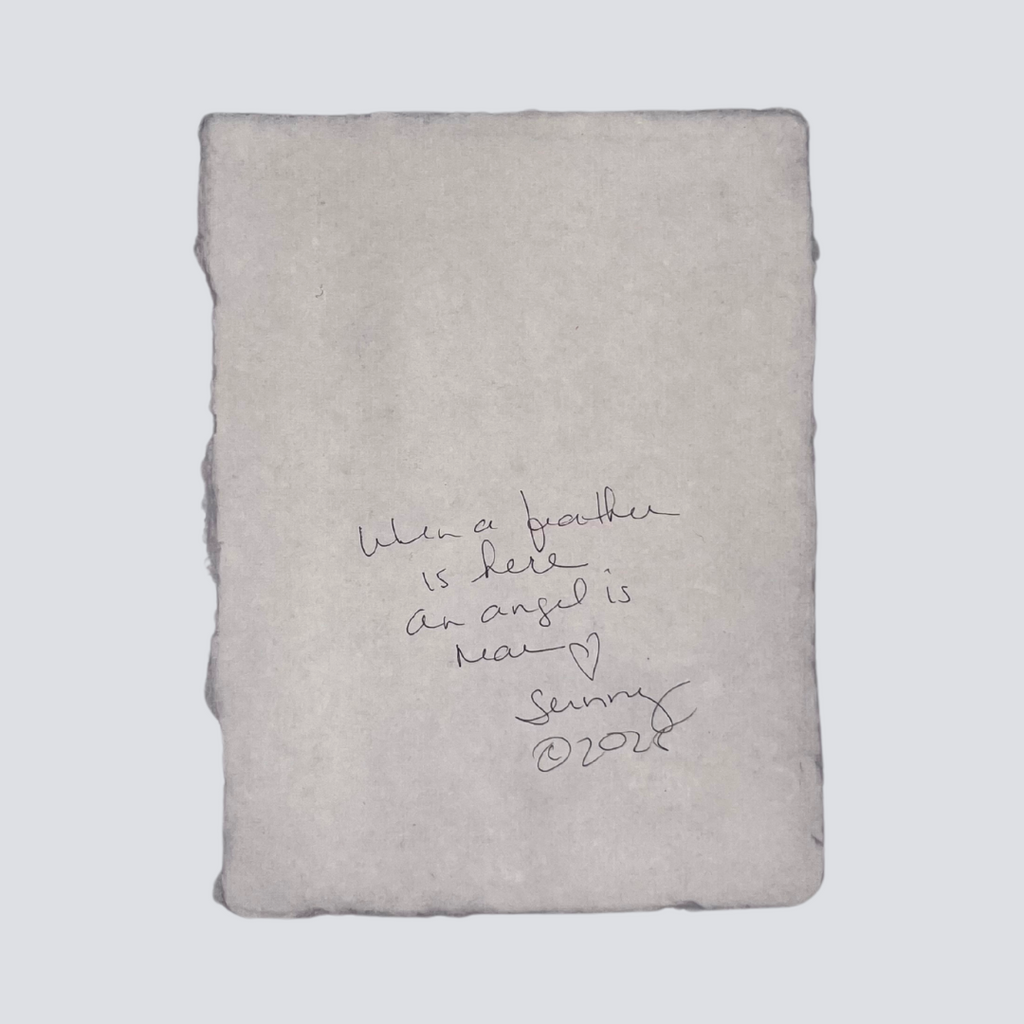 When a feather
is here
an angel is
near ♡
Sunny
©